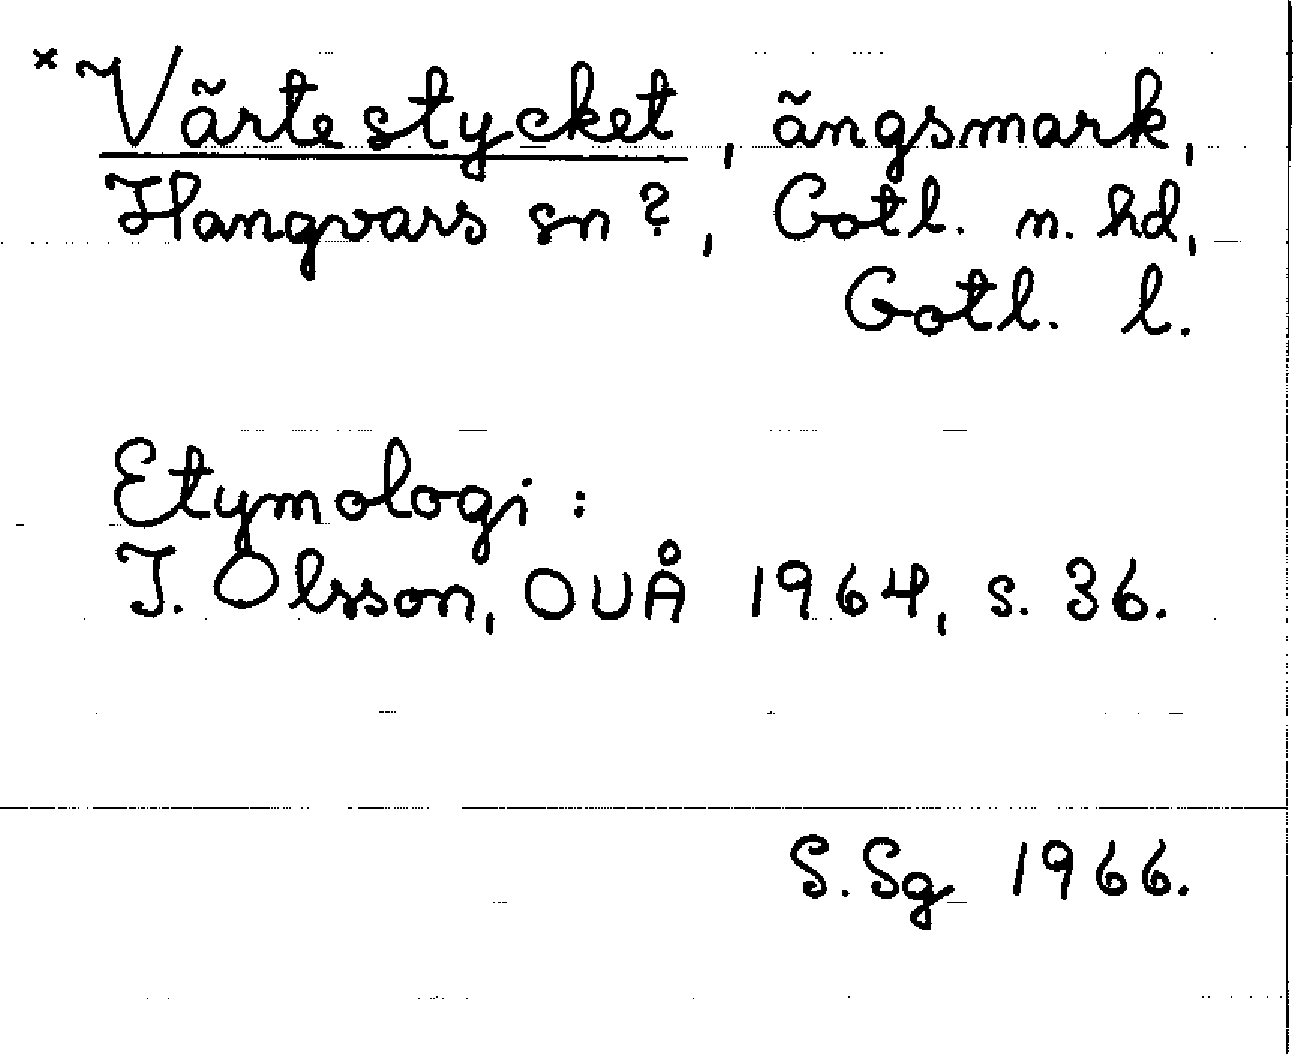 *Värtestycket, ängsmark,
Hangvars sn?, Gotl. n. hd,
Gotl. l.
Etymologi:
I. Olsson, OUÅ 1964, s. 36.
S. Sg 1966.